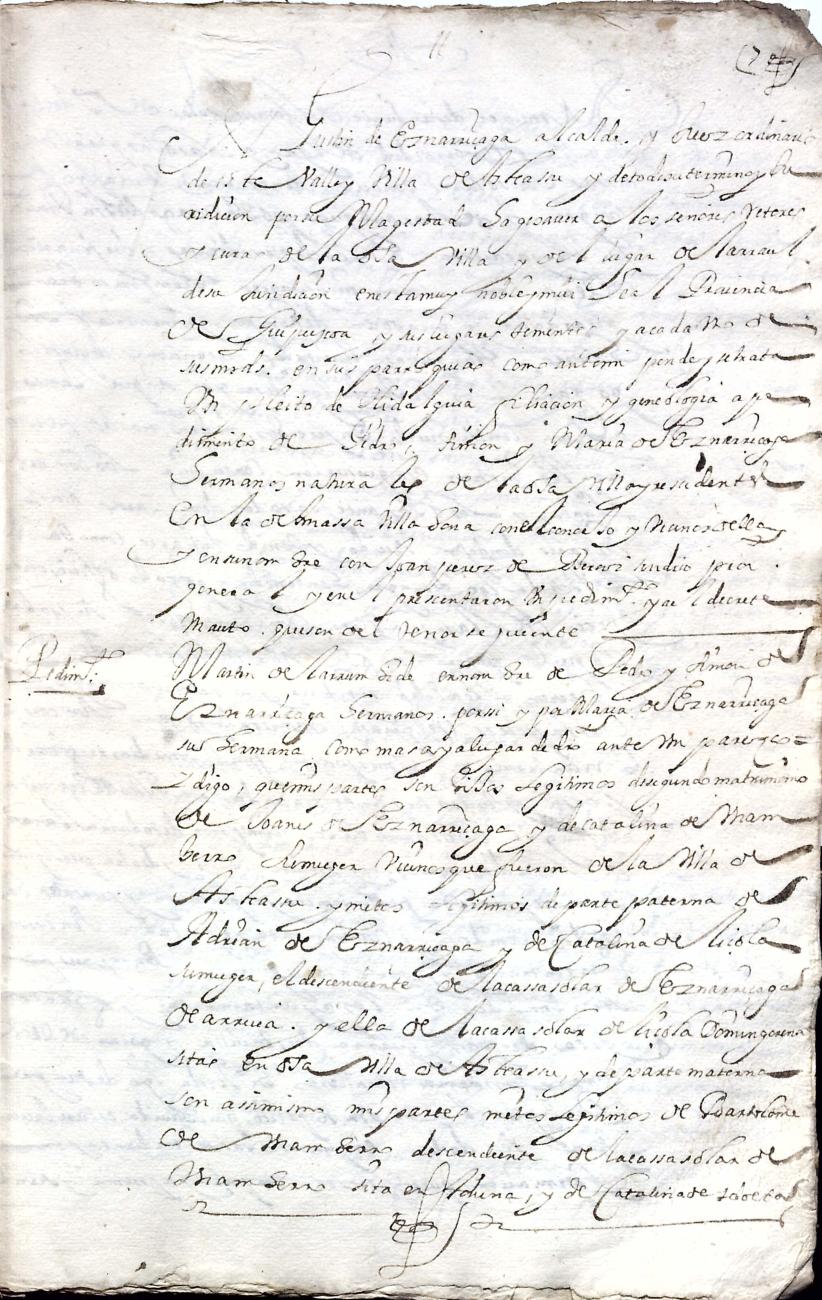 Justin de Eznarriçaga alcalde y Juez ordinario
de este Valle y Villa de Asteasu y de todo su termino y Ju
ridicion por su Magestad hago saver a los señores Retores
y curas de la dha Villa y del lugar de larraul
de su Juridicion en esta muy noble y mui Leal Provincia
de Guipuzcoa y sus lugares tenientes y a cada vno de
sus mrds. en sus parroquias como ante mi pende y se trata
Vn pleito de Hidalguia filiacion y genealogia a pe
dimiento de Pedro, Simon y Maria de Eznarriçaga
hermanos naturales de la dha Villa y residentes
en la de Amassa Villa bona con el concejo y vecinos de ella
y en su nombre con Joan perez de sindico pror
general y en el presentaron Vn pedimto y a el decrete
Vn auto. que son del tenor seguiente
Pedimto
Martin de larrum bide en nom bre de Pedro y Simon de
Eznarriçaga hermanos. por si y por Maria de Eznarriçaga
su hermana, como mas aya lugar de dro ante Vm parezco =
y digo, que mis partes son hijos legitimos de segundo matrimonio
de Joanes de Eznarriçaga y de catalina de Mam
berro su muger Vecinos que fueron de la Villa de
Asteasu. y nietos legitimos de parte paterna de
Adrian de Eznarriçaga y de Catalina de licola
su muger, el descendiente de la cassa solar de Eznarriçaga
de arriva. y ella de la cassa solar de licola Domingorena
sitas en dha Villa de Asteasu, y de parte materna
son assimismo mis partes nietos legitimos de Bartolome
de Mam berro descendiente de la cassa solar de
Mam berro sita en Aduna, y de Catalina de